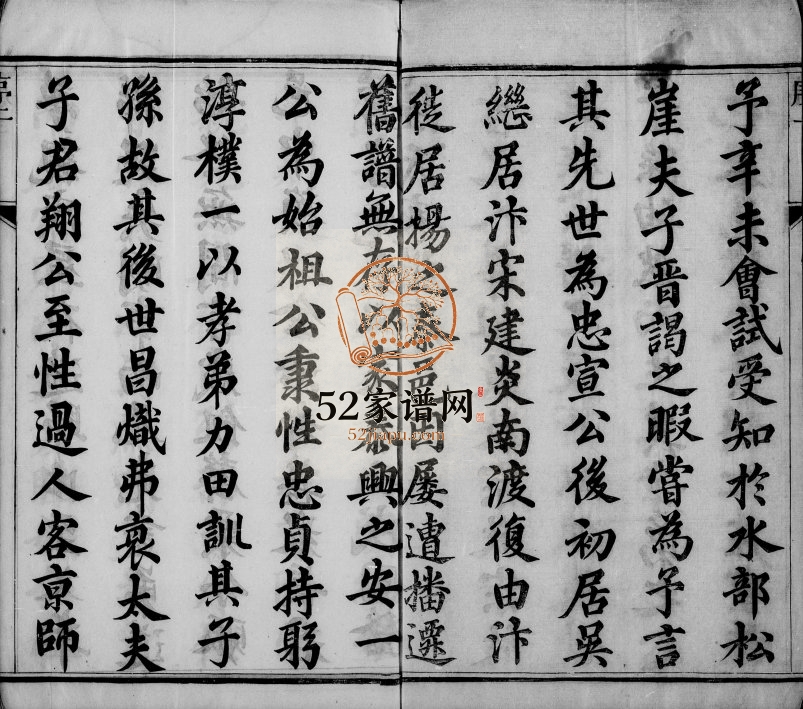 予辛未會試受知於水部松
崖夫子晉謁之暇嘗為予言
其先世為忠宣公後初居吳
繼居汴宋建炎南渡復由汴
徙居揚之泰邑因屢遭播遷
舊譜無存以來泰興之安一
公為始祖公秉性忠貞持躬
淳樸一以孝弟力田訓其子
孫故其後世昌熾弗衰太夫
子君翔公至性過人客京師
52家谱网
52jiapu.com